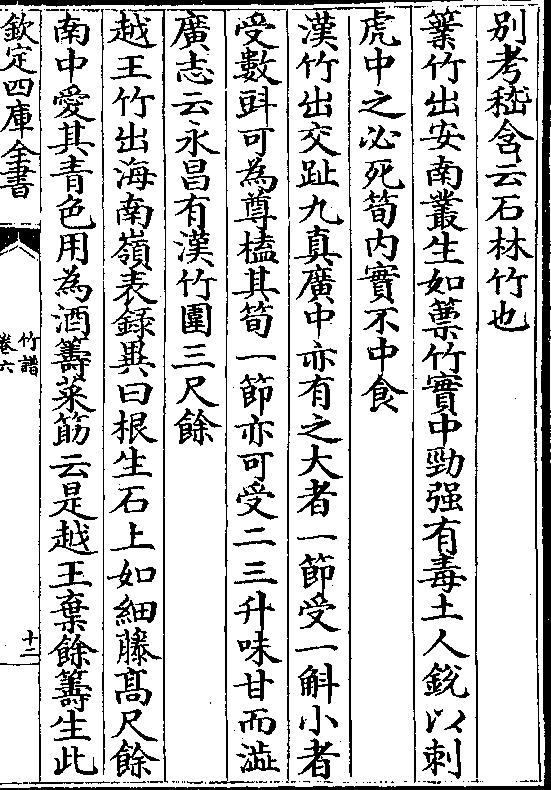 別考嵇含云石林竹也
䉬竹出安南叢生如藁竹實中勁强有毒土人銳以刺
虎中之必死筍内實不中食
漢竹出交趾九真廣中亦有之大者一節受一斛小者
受數㪷可為尊榼其筍一節亦可受二三升味甘而澁
廣志云永昌有漢竹圍三尺餘
越王竹出海南嶺表録異曰根生石上如細藤髙尺餘
南中愛其青色用為酒籌菜筯云是越王棄餘籌生此
欽定四庫全書
竹譜
卷六
十二